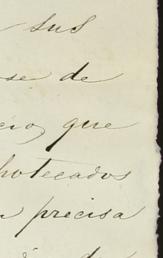 sus
se de
cio, que
hotecados
precisa